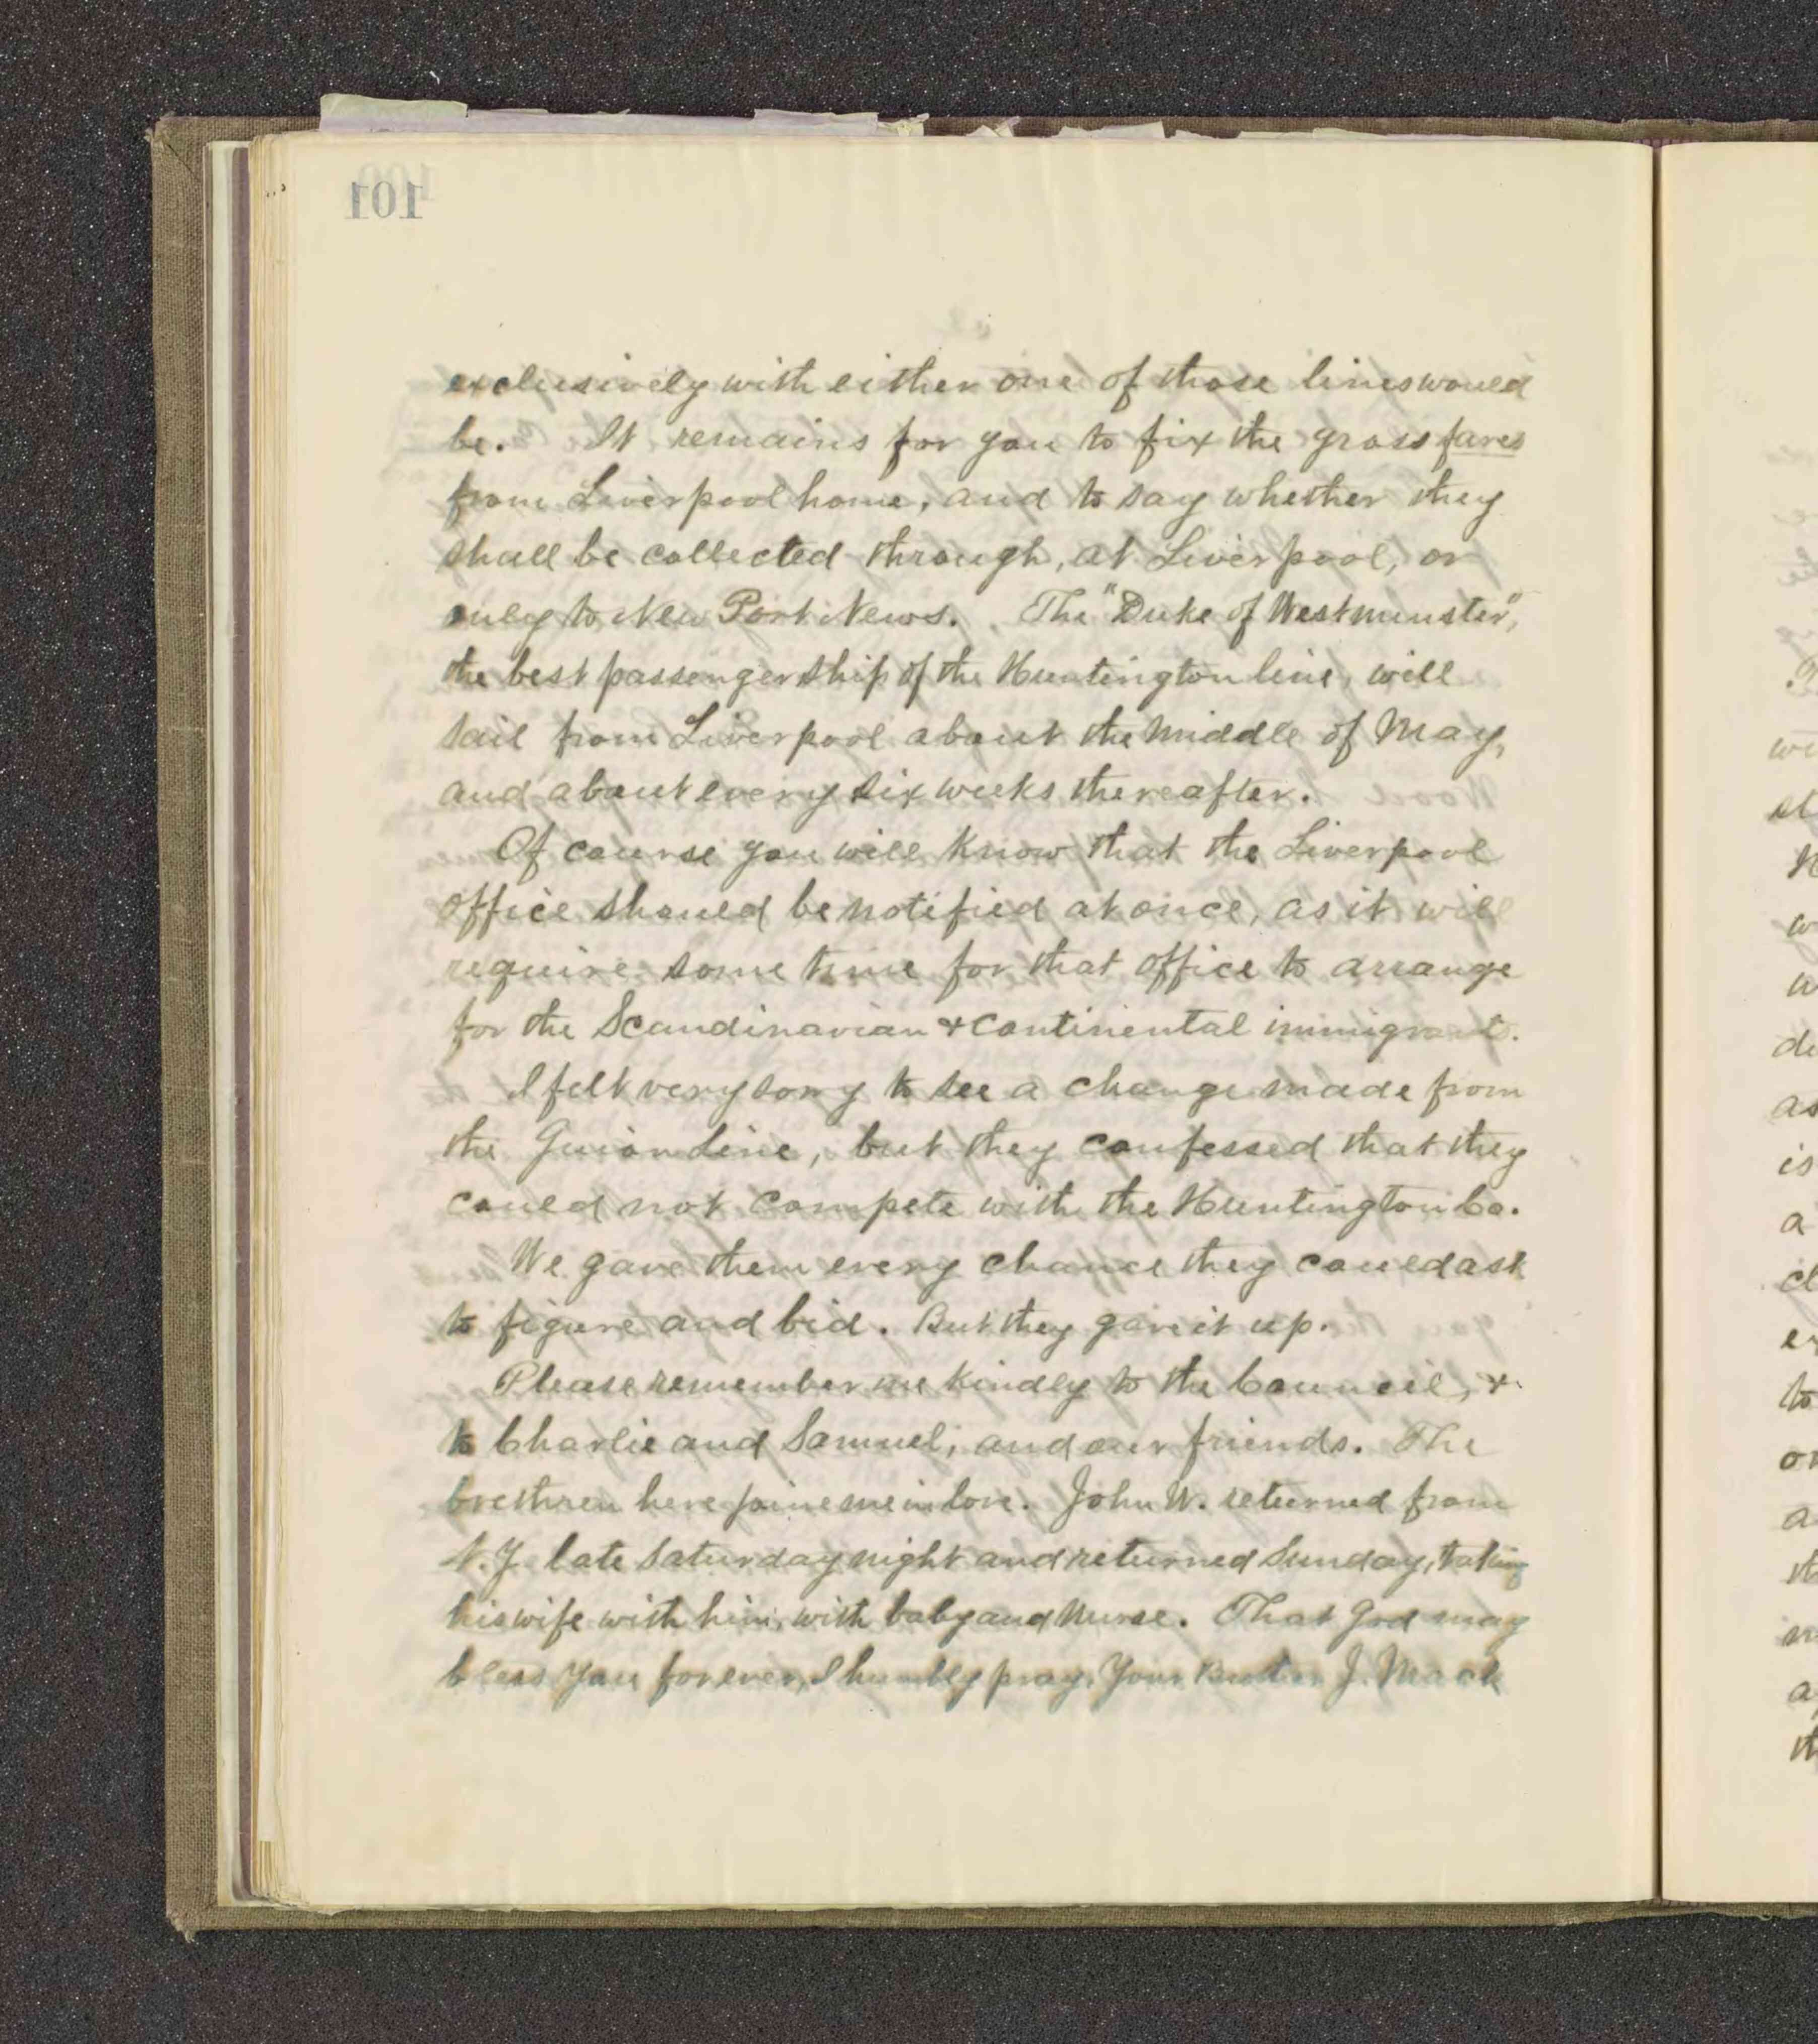 101
exclusively with either one of those lines would
be. It remains for you to fix the gross fares
from Liverpool home, and to say whether they
shall be collected through, at Liverpool, or
only to New Port News. The "Duke of Westminster",
the best passenger ship of the Huntington line, will
sail from Liverpool about the middle of May,
and about every six weeks thereafter.
Of course you will know that the Liverpool
office should be notified at once, as it will
require some time for that office to arrange
for the Scandinavian & Continental immigrants.
I felt very sorry to see a change made from
the Guion Line, but they confessed that they
could not compete with the Huntington Co.
We gave them every chance they could ask
to figure and bid. But they gave it up.
Please remember me kindly to the Council, &
to Charlie and Samuel, and our friends. The
brethren here joine me in love. John W. returned from
N.Y. late Saturday night and returned Sunday, taking
his wife with him, with baby and nurse. That God may
bless you forever, I humbly pray. Your J. Mack